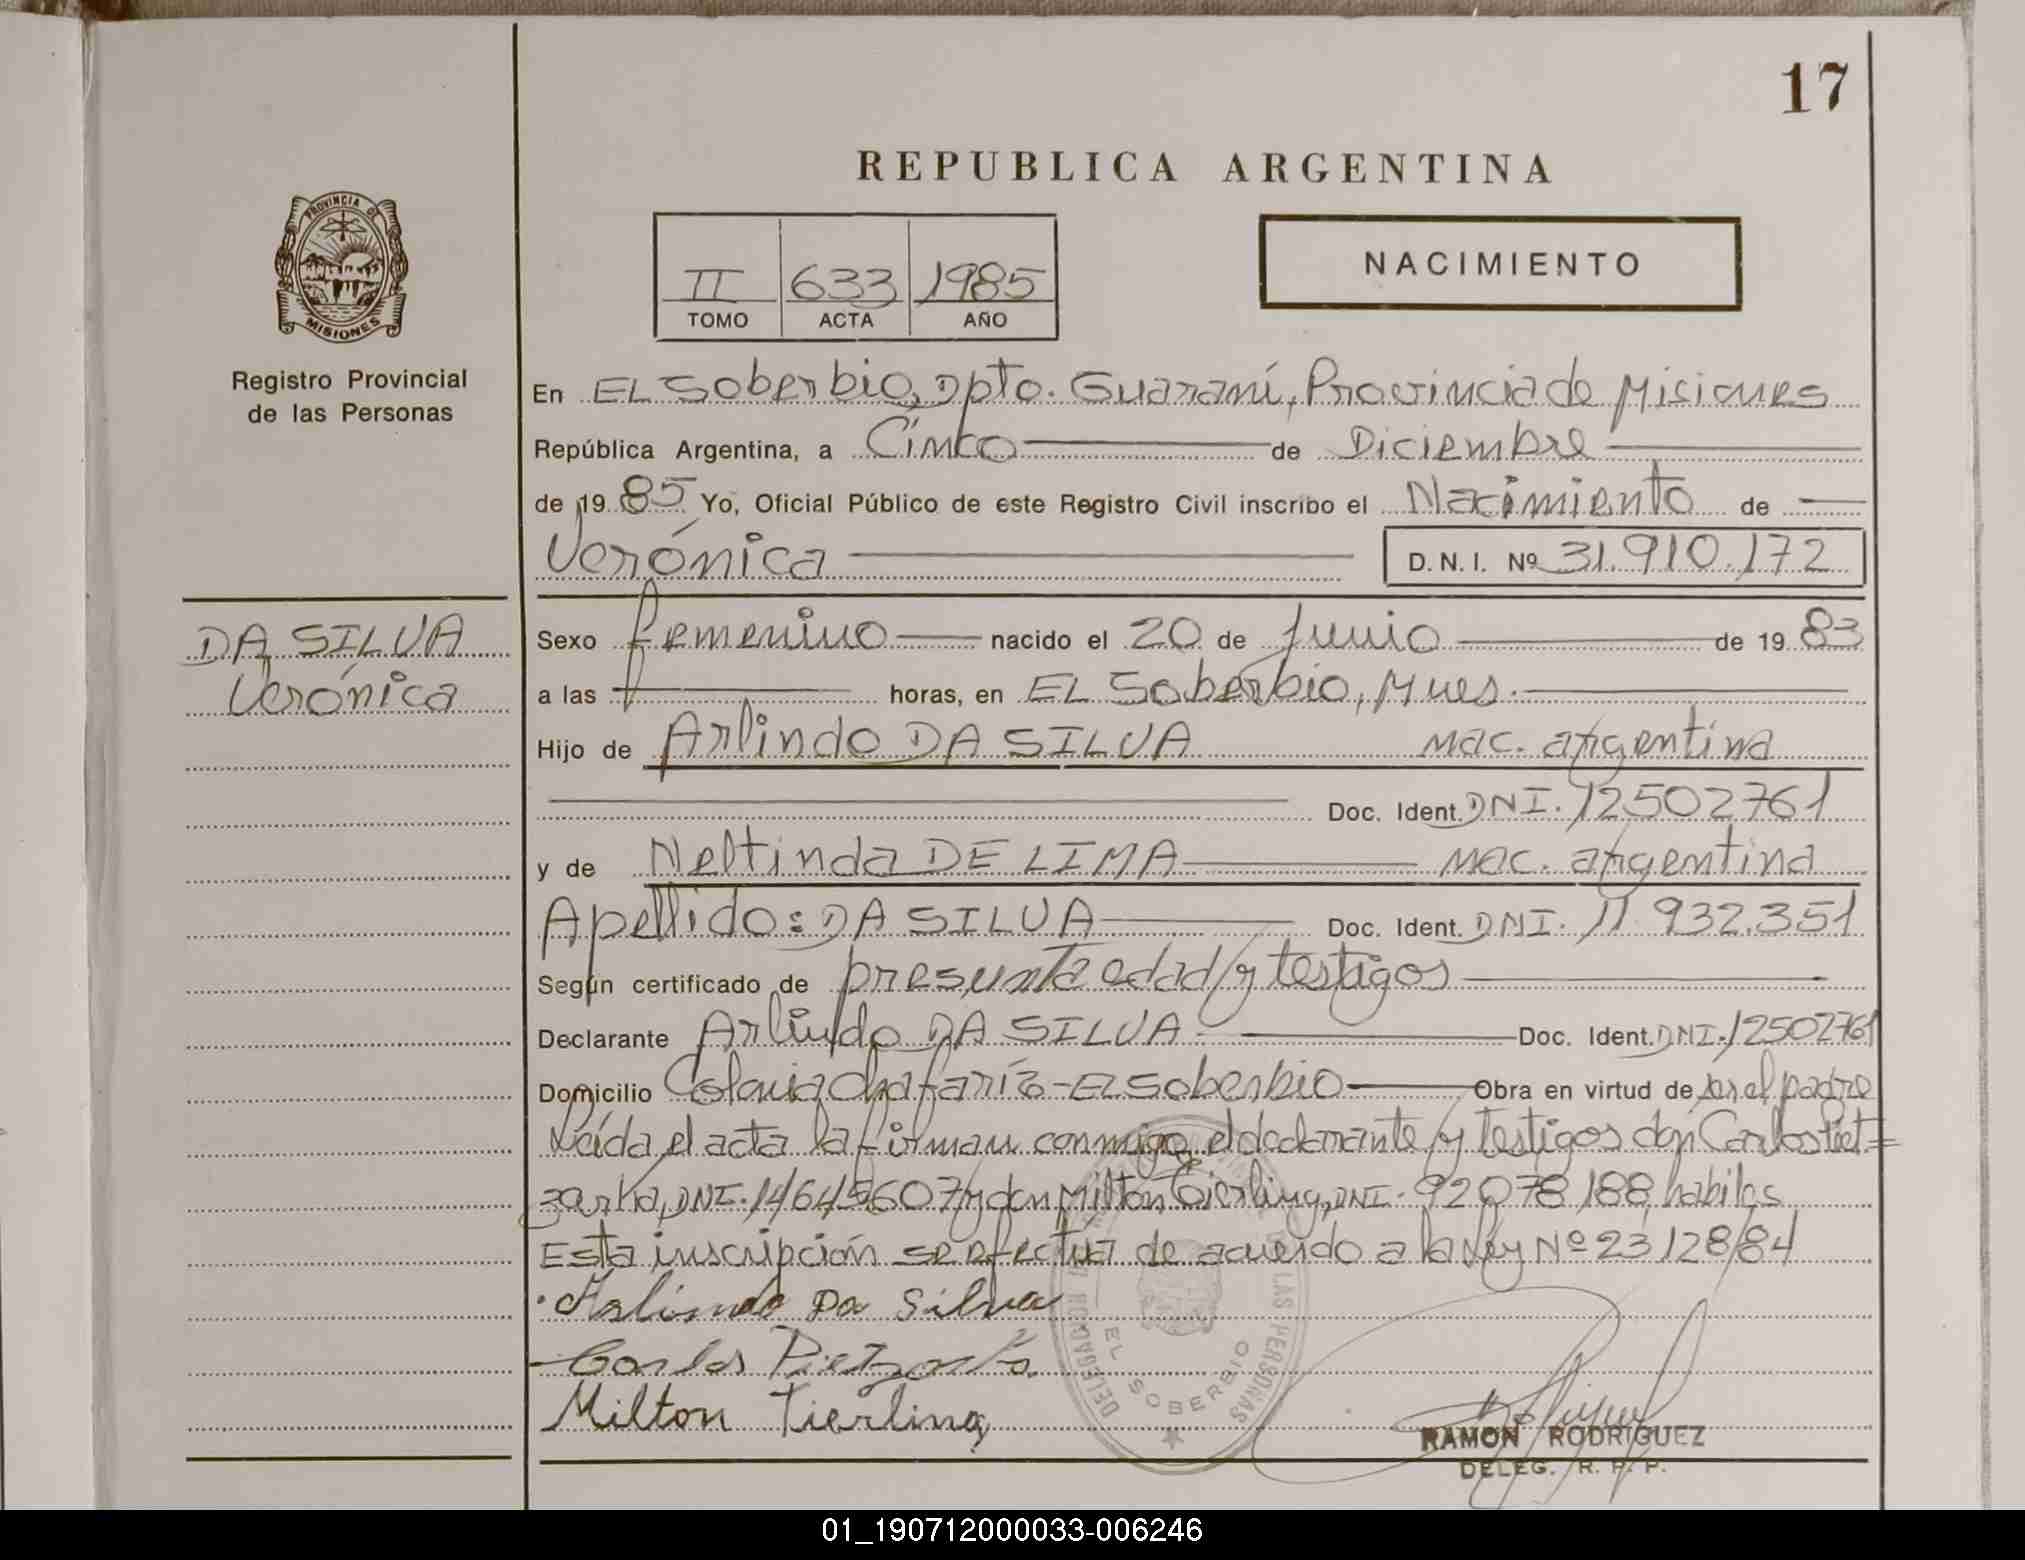 17
REPUBLICA ARGENTINA
PROVINCIA DE
MISIONES
Registro Provincial
de las Personas
II 633 1985
TOMO ACTA AÑO
NACIMIENTO
En EL Soberbio, Dpto. Guaraní, Provincia de Misiones
República Argentina, a Cinco de Diciembre
de 1985 Yo, Oficial Público de este Registro Civil inscribo el Nacimiento de
Verónica D.N.I. Nº 31.910.172
DA SILVA
Verónica
Sexo femenino nacido el 20 de Junio de 1983
a las horas, en EL Soberbio, Mnes.
Hijo de Arlindo DA SILVA nac. argentina
Doc. Ident. DNI. 12502761
y de Neltinda DE LIMA nac. argentina
Apellido: DA SILVA Doc. Ident. DNI. 11.932.351
Según certificado de presunta edad y testigos
Declarante Arlindo DA SILVA Doc. Ident. DNI. 12502761
Domicilio Colonia Chafaríz - EL Soberbio Obra en virtud de ser el padre
Leída el acta la firman conmigo el declarante y testigos don Carlos Piet=
zarka, DNI. 14645607 y don Milton Tierling, DNI. 92078188, habiles
Esta inscripción se efectua de acuerdo a la Ley Nº 23128/84
Arlindo Da Silva
Carlos Pietzarka.
Milton Tierling
DELEGACION
LAS PERSONAS
EL SOBERBIO
RAMON RODRIGUEZ
DELEG. R. P. P.
01_190712000033-006246